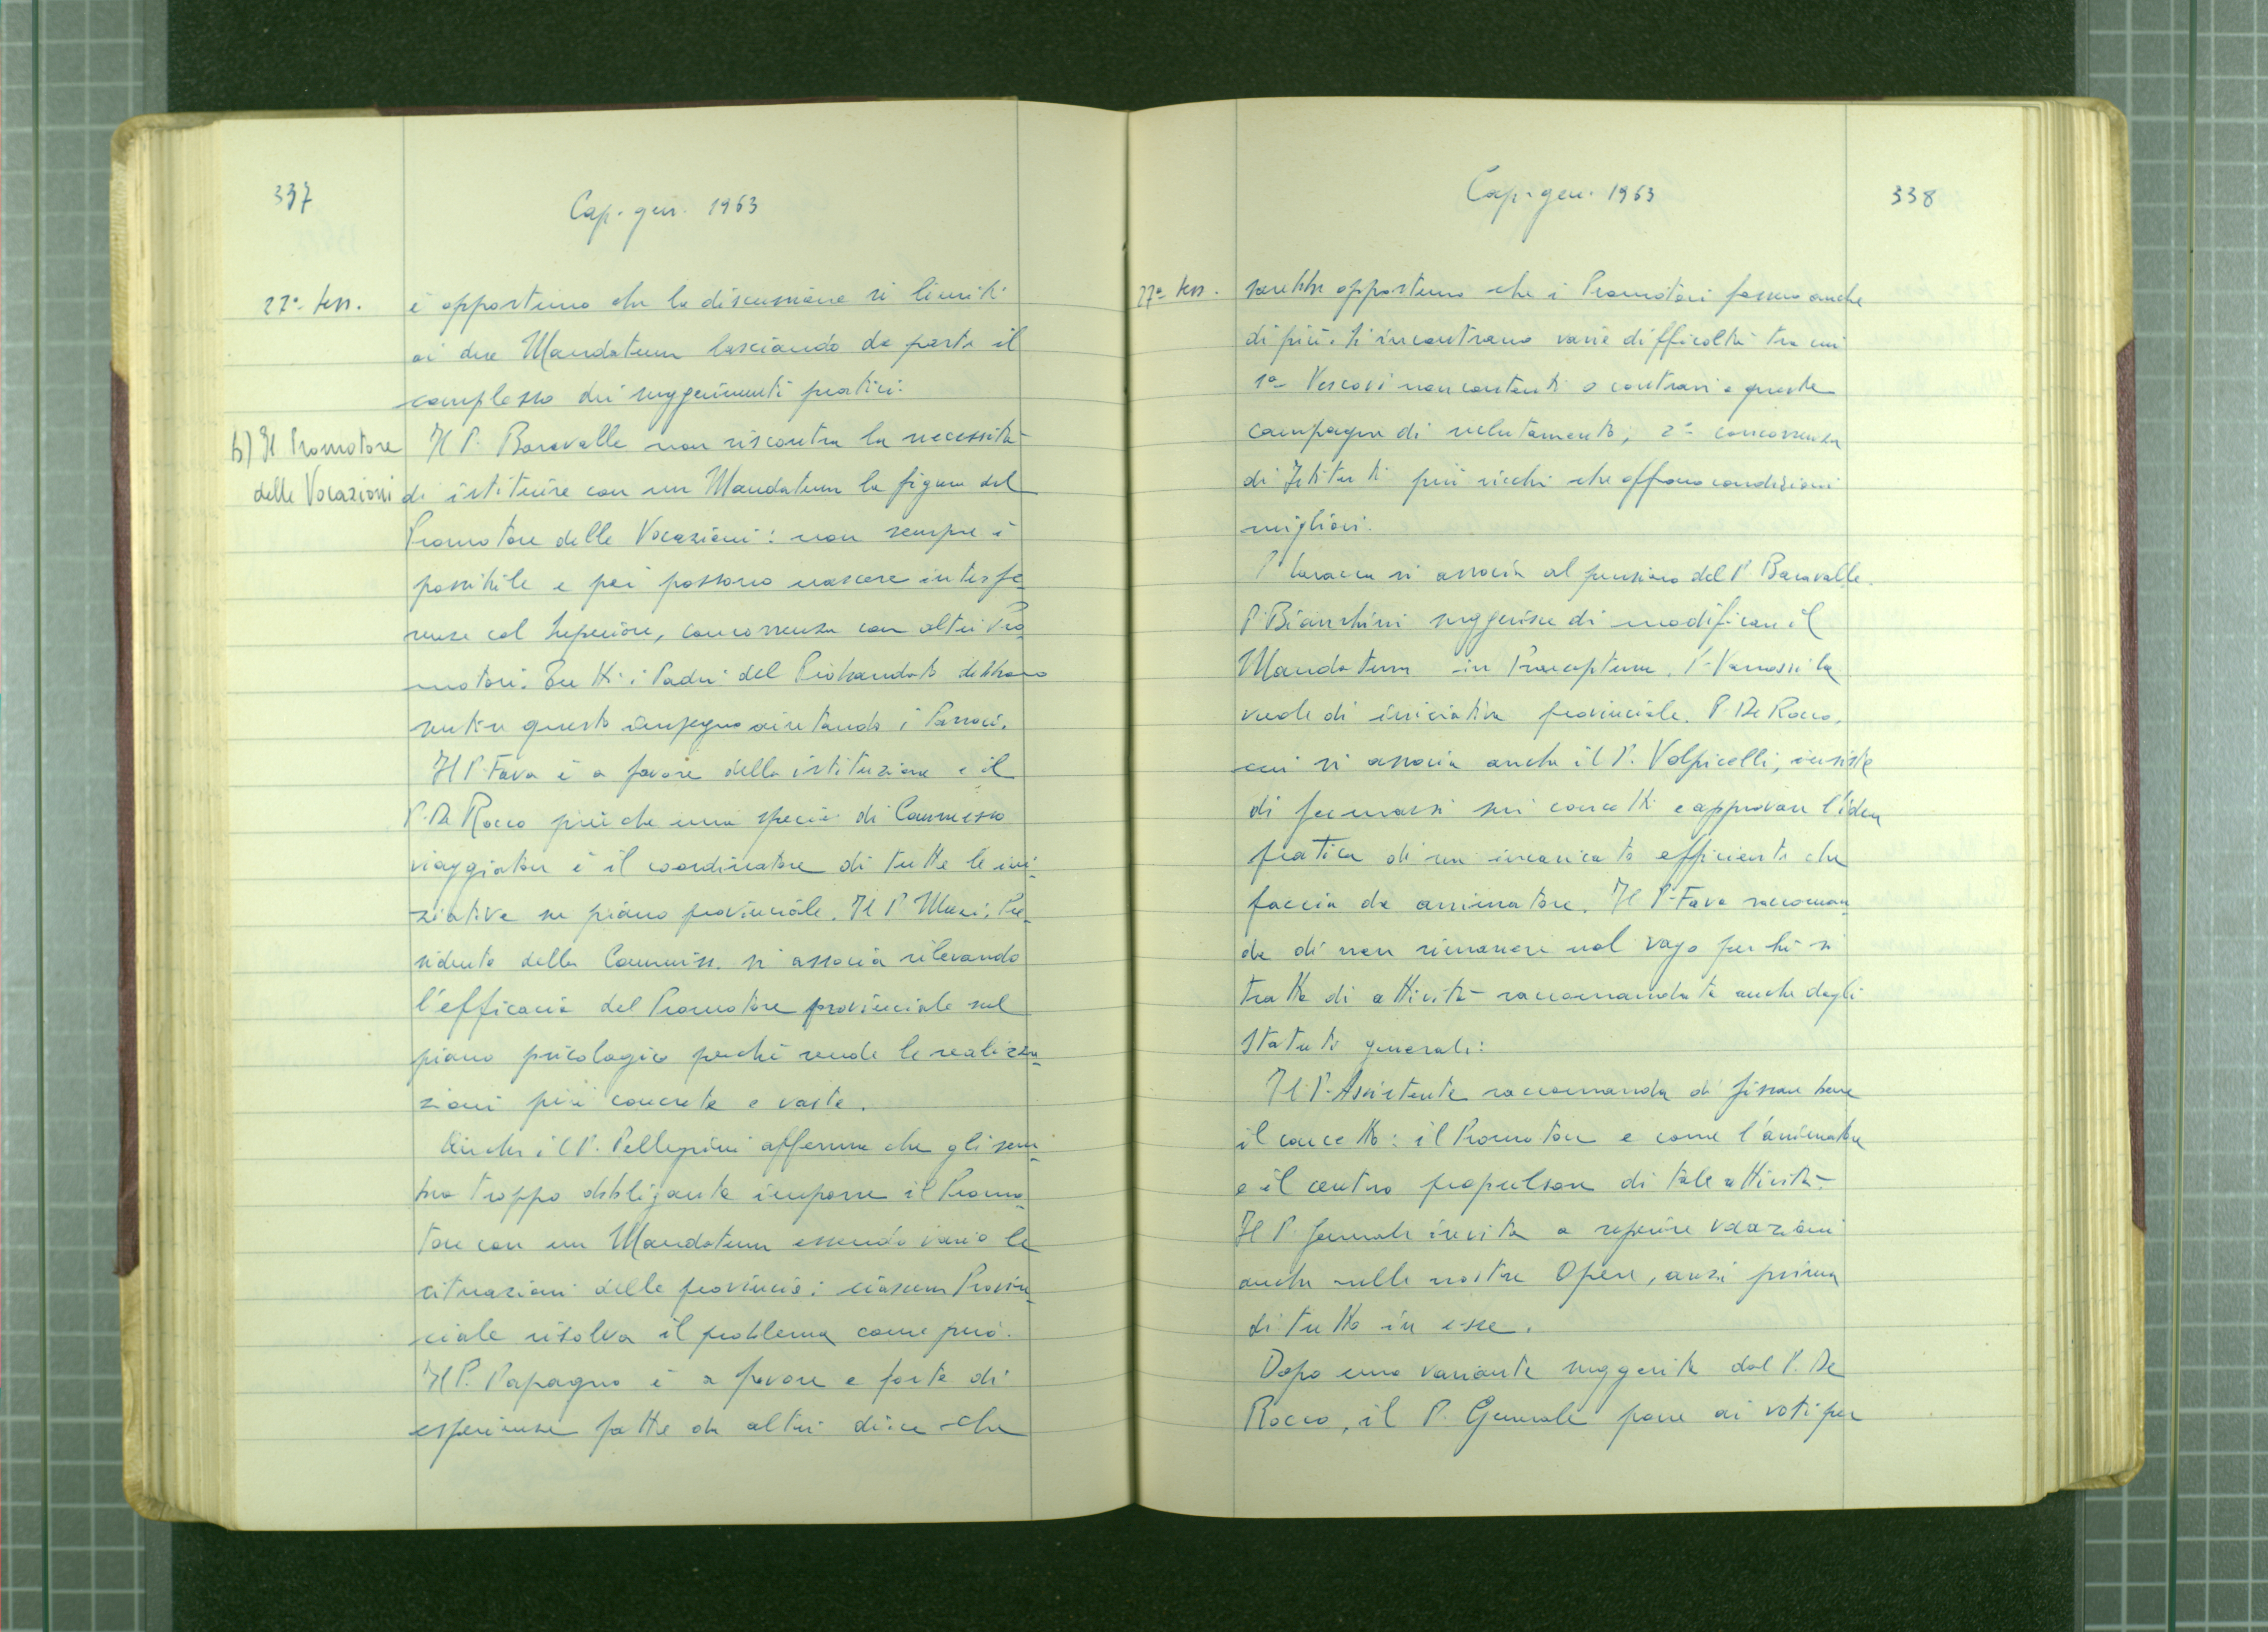 337
Cap. gen. 1963
27ª- sess.
è opportuno che la discussione si limiti
ai due Mandatum lasciando da parte il
complesso dei suggerimenti pratici.
b) Il Promotore
delle Vocazioni
Il P. Baravalle non riscontra la necessità
di istituire con un Mandatum la figura del
Promotore delle Vocazioni: non sempre è
possibile e poi possono nascere interfe_
renze col Superiore, concorrenza con altri Pro_
motori. Tutti i Padri del Probandato debbono
sentire questo impegno aiutando i Parroci.
Il P. Fava è a favore della istituzione e il
P. De Rocco più che una specie di Commesso
viaggiatore è il coordinatore di tutte le ini_
ziative su piano provinciale. Il P. Muzi, Pre_
sidente della Commiss. si associa rilevando
l'efficacia del Promotore provinciale sul
piano psicologico perché rende le realizza_
zioni più concrete e vaste.
Anche il P. Pellegrini afferma che gli sem_
bra troppo obbligante imporre il Promo_
tore con un Mandatum essendo varie le
situazioni delle provincie: ciascun Provin_
ciale risolva il problema come può.
Il P. Papagno è a favore e forte di
esperienze fatte da altri dice che
Cap. gen. 1963
338
27ª- sess.
sarebbe opportuno che i Promotori fossero anche
di più. Si incontrano varie difficoltà tra cui
1ª- Vescovi non contenti o contrari a queste
campagne di reclutamento; 2ª- concorrenza
di Istituti più ricchi che offrono condizioni
migliori.
P. si associa al pensiero del P. Baravalle.
P. Bianchini suggerisce di modificare il
Mandatum in Praeceptum. P. Vanossi la
vuole di iniziativa provinciale. P. De Rocco,
cui si associa anche il P. Volpicelli, insiste
di fermarsi sui concetti e approvare l'idea
pratica di un incaricato efficiente che
faccia da animatore. Il P. Fava raccoman_
da di non rimanere nel vago perché si
tratta di attività raccomandata anche dagli
Statuti generali:
Il P. Assistente raccomanda di fissare bene
il concetto: il Promotore è come l'animatore
e il centro propulsore di tale attività.
Il P. Generale invita a reperire vocazioni
anche nelle nostre Opere, anzi prima
di tutto in esse.
Dopo una variante suggerita dal P. De
Rocco, il P. Generale pone ai voti per